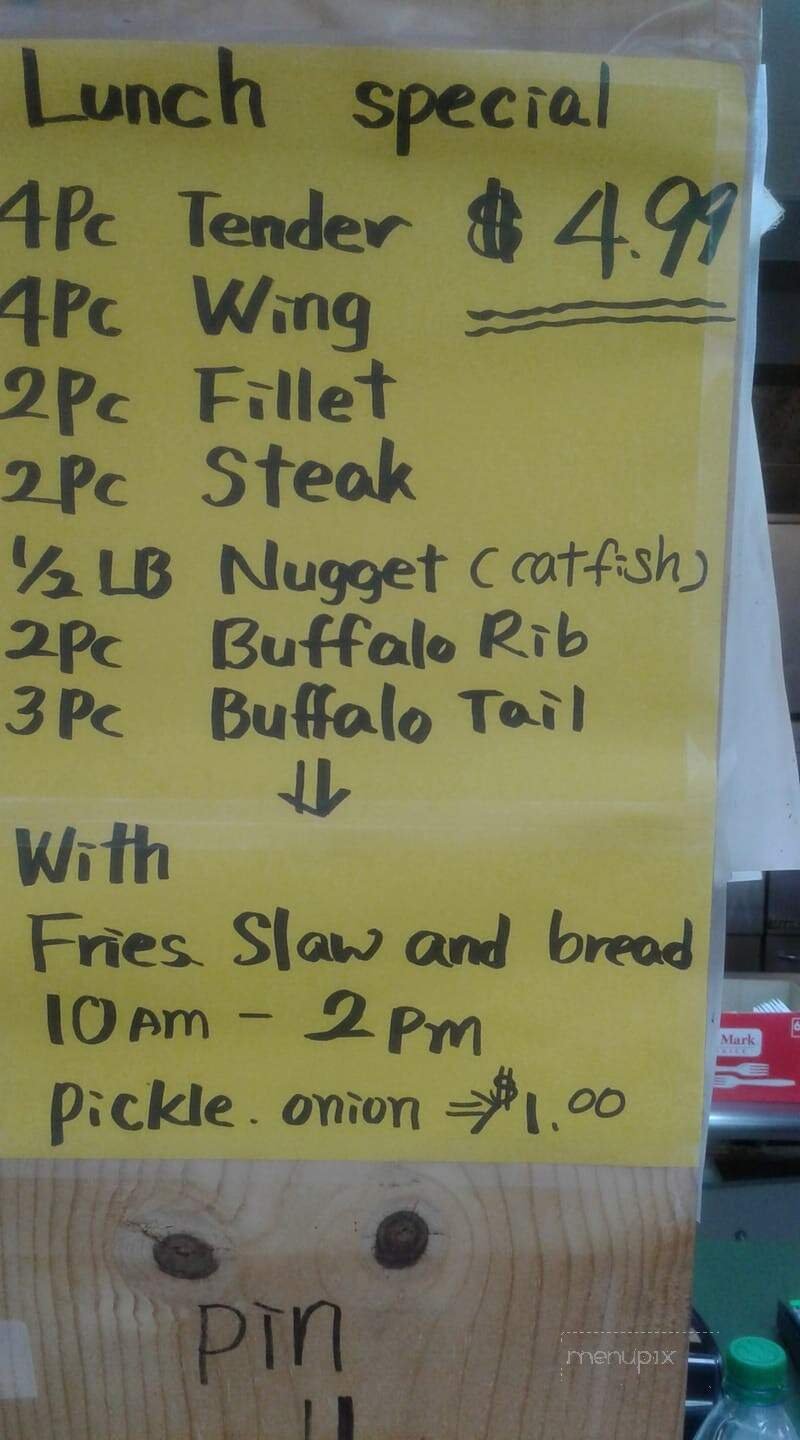 Lunch special
4Pc Tender $4.99
4Pc Wing
2Pc Fillet
2Pc Steak
1/2 LB Nugget (catfish)
2Pc Buffalo Rib
3Pc Buffalo Tail
⇓
With
Fries Slaw and bread
10AM - 2PM
Pickle. onion ⇒ $1.00
Mark
pin
menupix